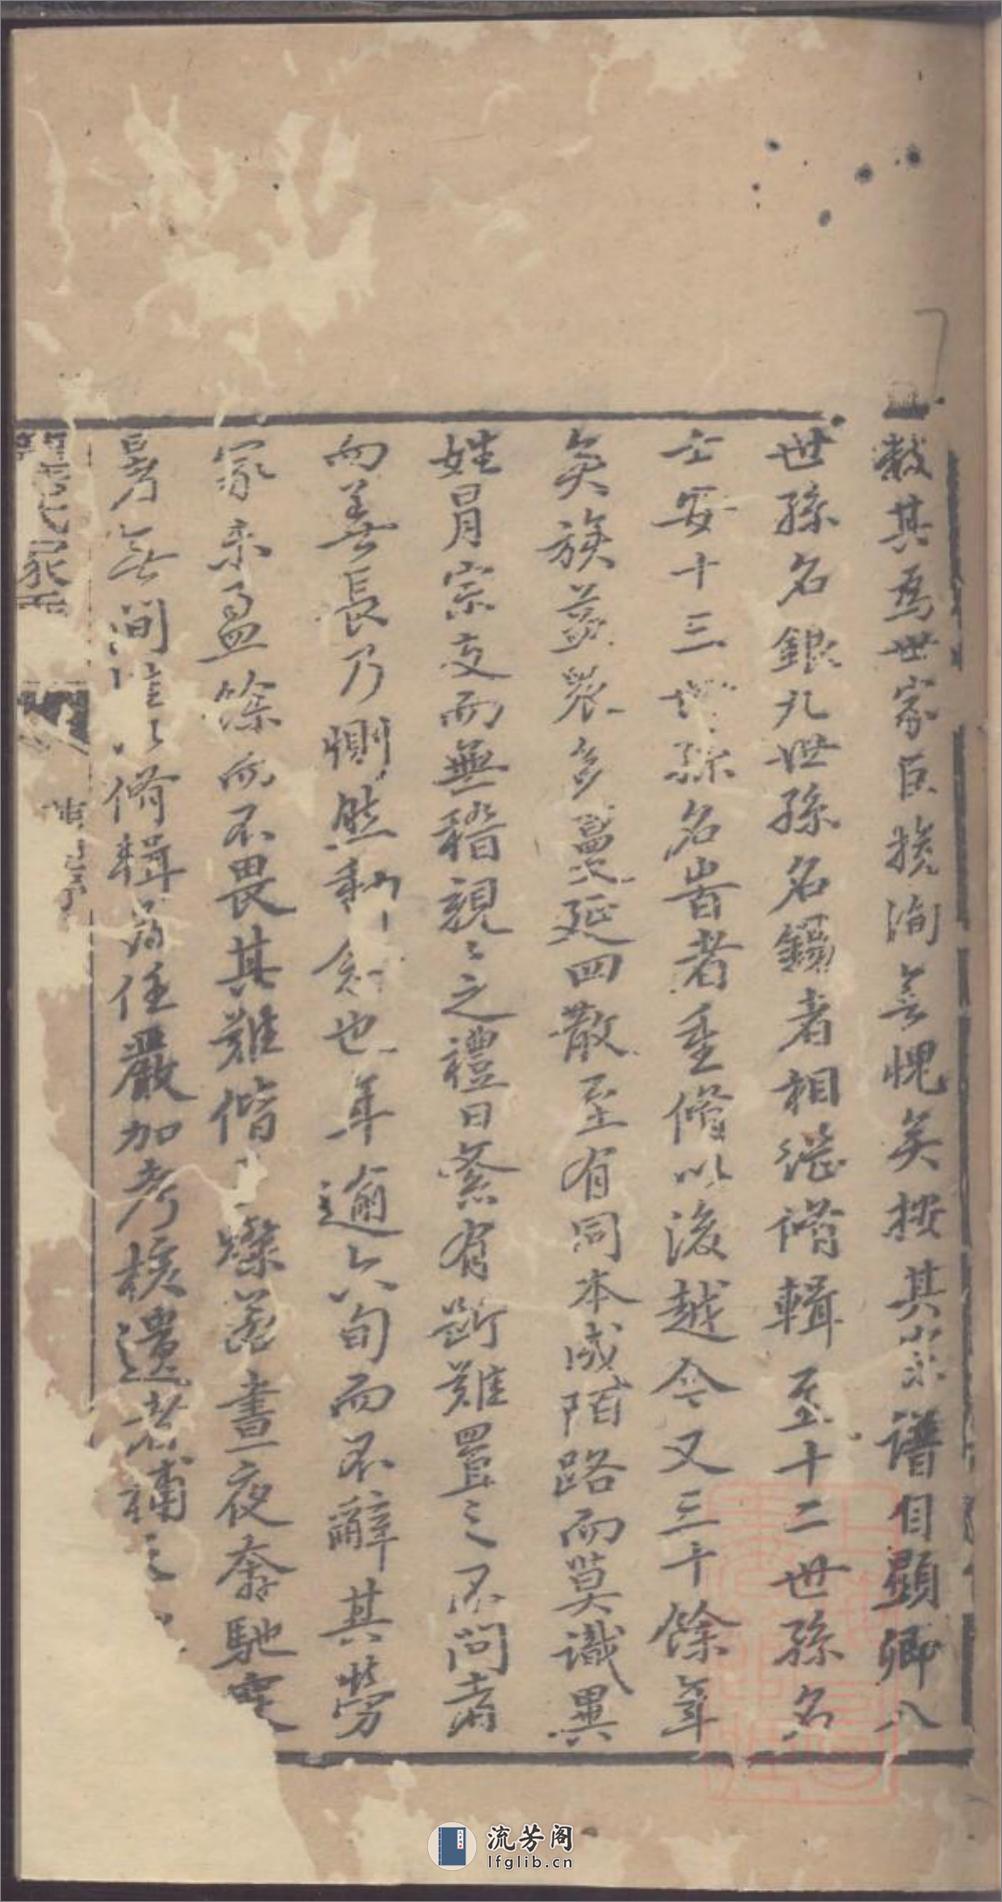 數其為世家巨族洵無愧矣按其宗譜自顯卿八
世孫名銀九世孫名鐊者相繼脩輯至十二世孫名
士安十三世孫名耆者重脩以後越今又三十餘年
矣族益衆多蔓延四散至有同本成陌路而莫識異
姓冒宗支而無稽親〻之禮日紊有斷難置之不問者
而善長乃惻然動念也年逾六旬而不辭其勞
家乘盈餘而不畏其難偕 燦羔晝夜奔馳
无間 脩輯為任嚴加考核遺者補之
氏家
流芳阁
lfglib.cn